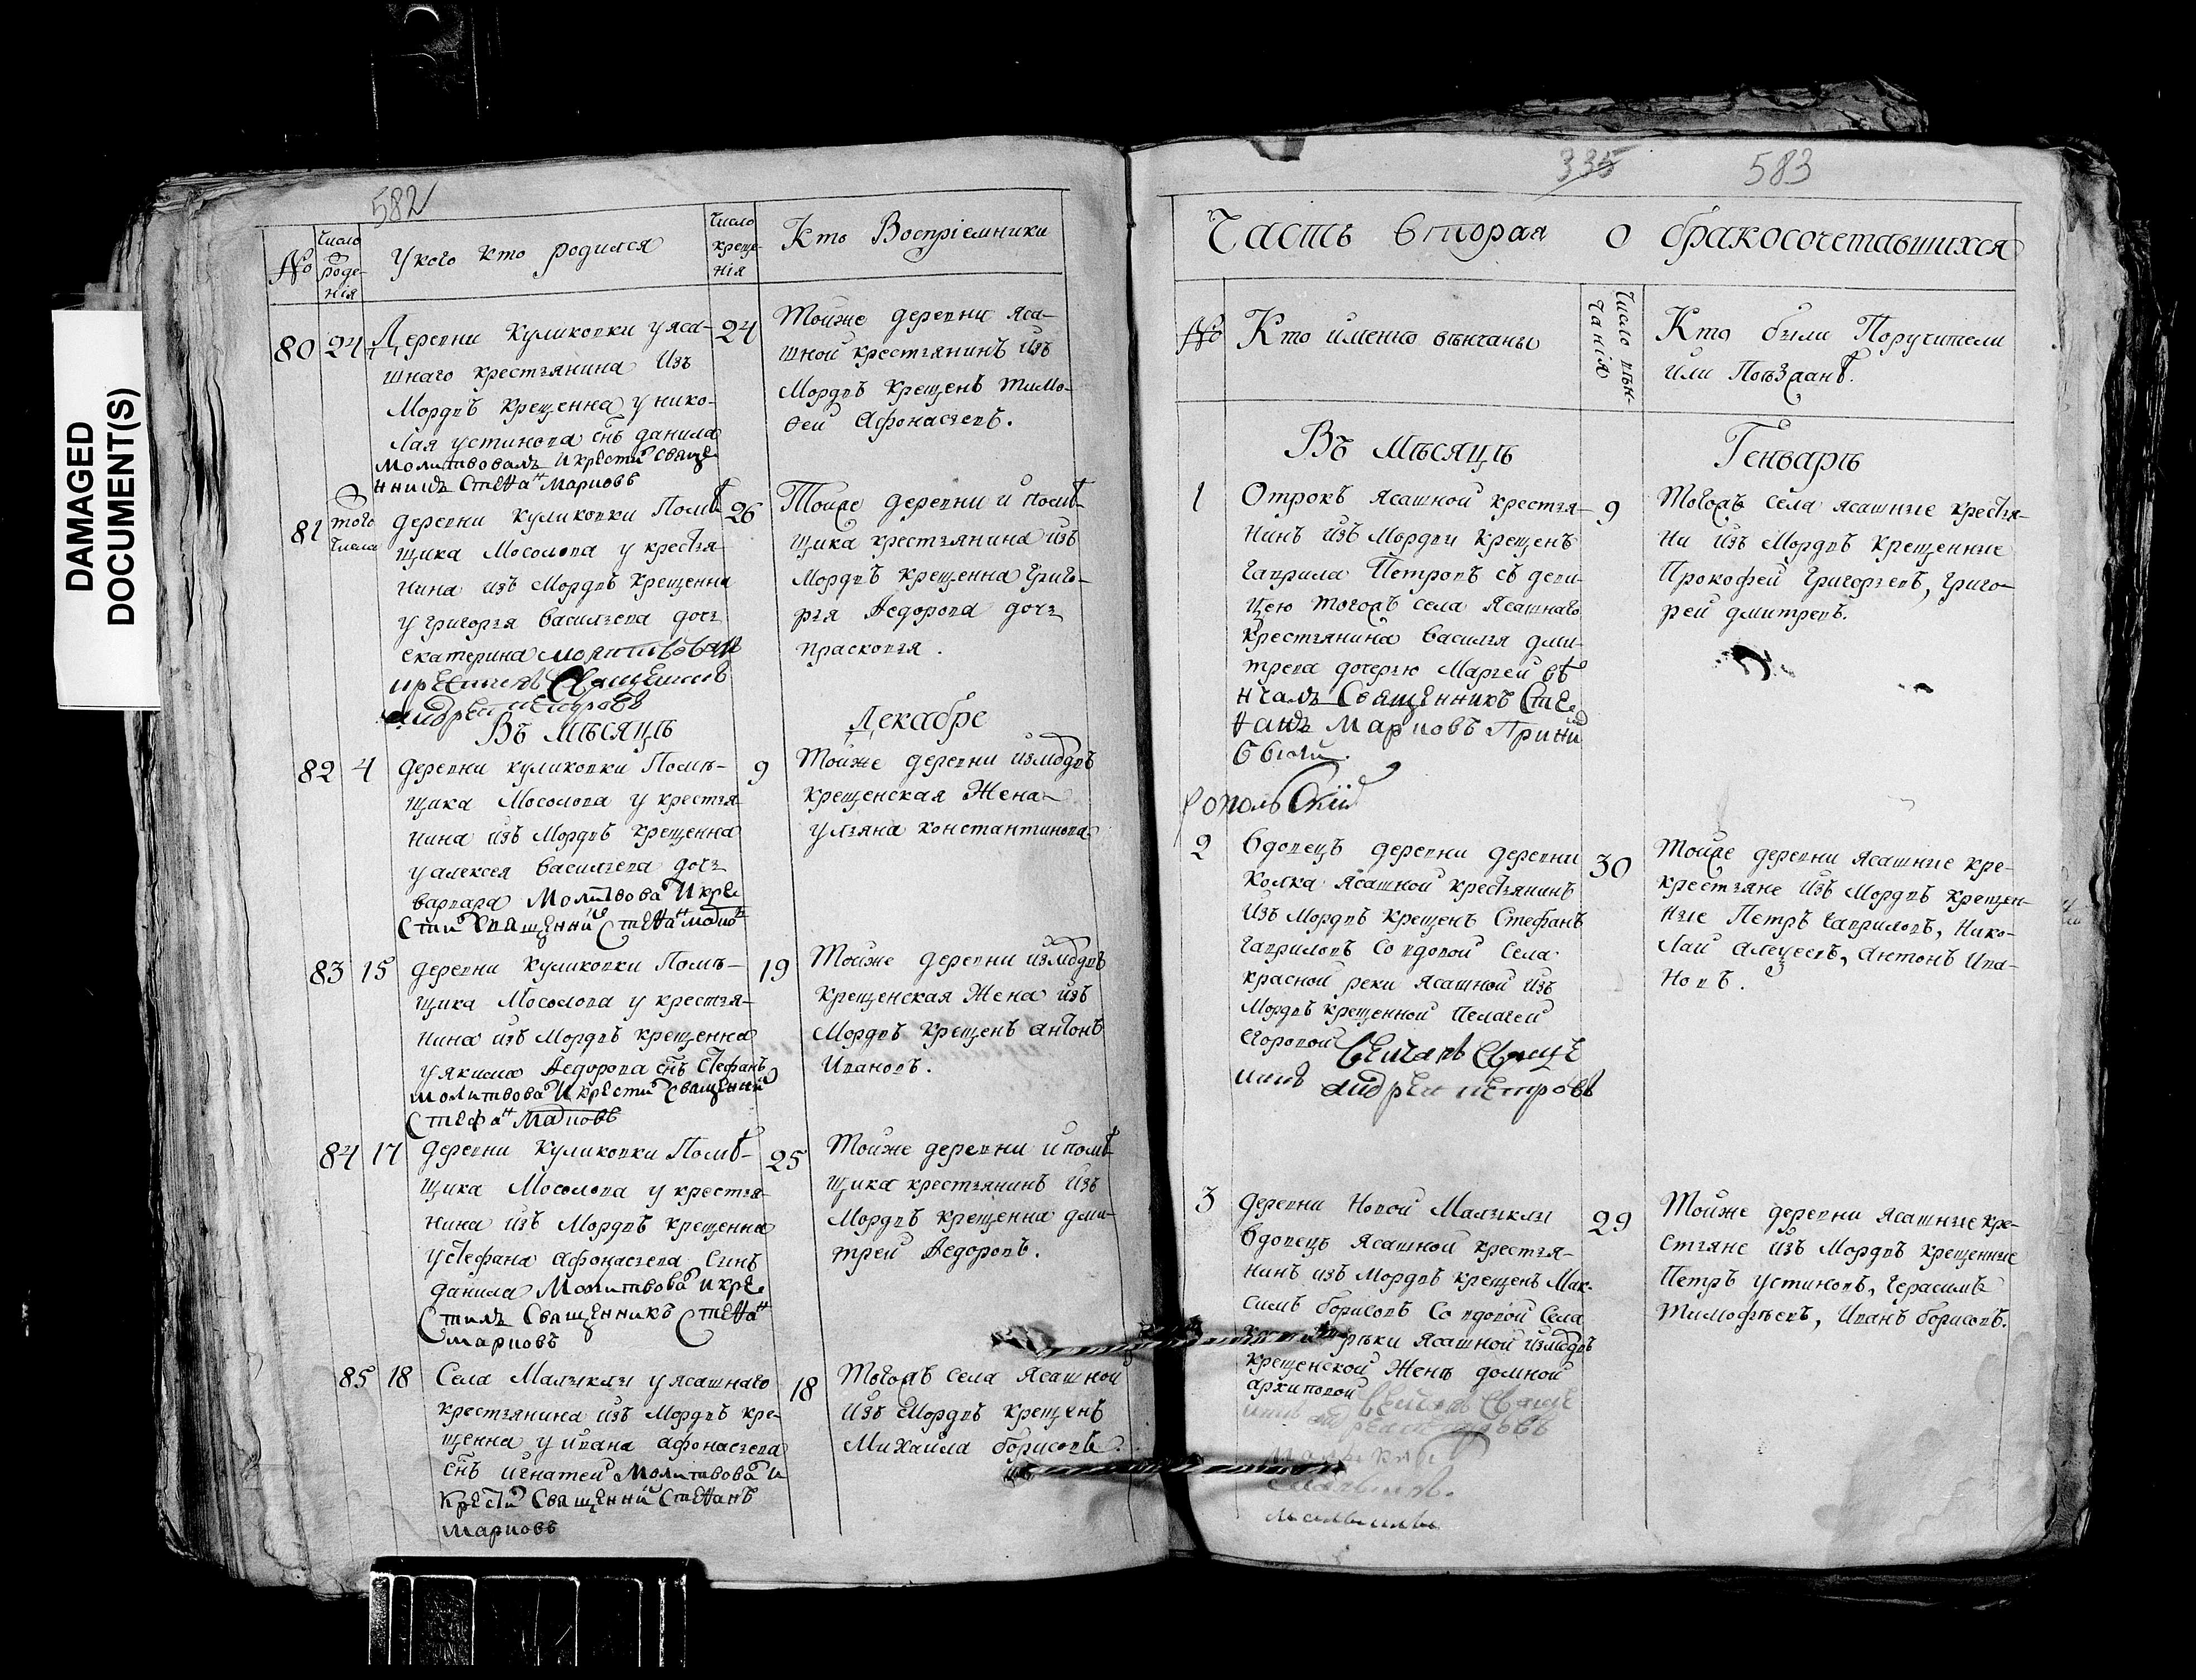 DAMAGED
DOCUMENT(S)
582
№
Число роде-
нія
У кого кто родился
Число
креще-
нія
Кто Воспріемники
80
24
Деревни Куликовки у яса-
шнаго крестьянина Изъ
Мордвъ крещенна у нико-
лая устинова снъ данила
Молитвовалъ И крести Свяще
нникъ Стефа Мариовъ
24
Тойже деревни яса-
шной крестьянинъ изъ
Мордвъ крещенъ тимо-
фей Афонасьевъ.
81
того
числа
деревни куликовки Помѣ-
щика Мосолова у крестья-
нина изъ Мордвъ крещенна
у григорья васильева дочь
екатерина молитвовал
Священникъ
андреи петровъ
26
Тойже деревни и помѣ-
щика крестьянина изъ
Мордвъ крещенна Григо-
рья Федорова дочь
прасковья.
Въ мѣсяцѣ
Декабре
82
4
деревни куликовки Помѣ-
щика Мосолова у крестья-
нина изъ Мордвъ крещенна
у алексея васильева дочь
варвара Молитвова И кре
сти Священни Стефа
9
Тойже деревни измодвъ
крещенская Жена
ульяна константинова
83
15
деревни куликовки Помѣ-
щика Мосолова у крестья-
нина изъ Мордвъ крещенна
у якима Федорова снъ стефанъ
молитвова И крести Священни
Стефа
19
Тойже деревни измодвъ
крещенская Жена изъ
Мордвъ крещенъ антонъ
Ивановъ.
84
17
деревни Куликовки Помѣ-
щика Мосолова у крестья-
нина изъ Мордвъ крещенна
у стефана афонасьева Сынъ
данила Молитвова И кре
стилъ Священникъ Стефа
Мариовъ
25
Тойже деревни и помѣ-
щика крестьянинъ изъ
Мордвъ крещенна дми-
трей Федоровъ.
85
18
Села Малыклы у ясашнаго
крестьянина изъ Мордвъ кре-
щенна у ивана афонасьева
снъ игнатей Молитвова И
Крести Священни Стефанъ
Мариовъ
18
Тогожъ села Ясашной
изъ Мордвъ крещенъ
Михайла борисовъ.
335
583
Часть вторая о бракосочетавшихся
№
Кто именно вѣнчаны
Число вѣн-
чанія
Кто были Поручители
или Поѣзданѣ.
Въ Мѣсяцѣ
Генварѣ
1
Отрокъ ясашной крестья-
нинъ изъ Мордви крещенъ
гаврила Петровъ съ деви-
цею тогожъ села Ясашнаго
крестьянина василья дми-
трева дочерью Марьей вѣ
нчалъ Священникъ Сте
фанъ Мариовъ

9
Тогожъ села ясашные крестья-
ни изъ Мордвъ крещенные
Прокофей григорьевъ, григо-
рей дмитревъ.
2
вдовецъ деревни деревни
Колка Ясашной крестьянинъ
изъ Мордвъ крещенъ Стефанъ
гавриловъ Со вдовой Села
красной реки Ясашной изъ
Мордвъ крещенной Пелагеи
егоровой венчалъ Священ
никъ андреи петровъ
30
Тойже деревни Ясашные кре-
крестьяне изъ Мордвъ крещен-
ные Петръ гавриловъ, Нико-
лай алеѯеевъ, антонъ ива-
новъ.
3
деревни Новой Малыклы
вдовецъ ясашной крестья-
нинъ изъ Мордвъ крещенъ Мак-
симъ борисовъ Со вдовой Села
рѣки Ясашной измодвъ
крещенской Женѣ домной
архиповой венчалъ Священ
никъ андреи петровъ
29
Тойже деревни ясашные кре-
стьяне изъ Мордвъ крещенные
Петръ устиновъ, герасимъ
тимофѣевъ, Иванъ борисовъ.